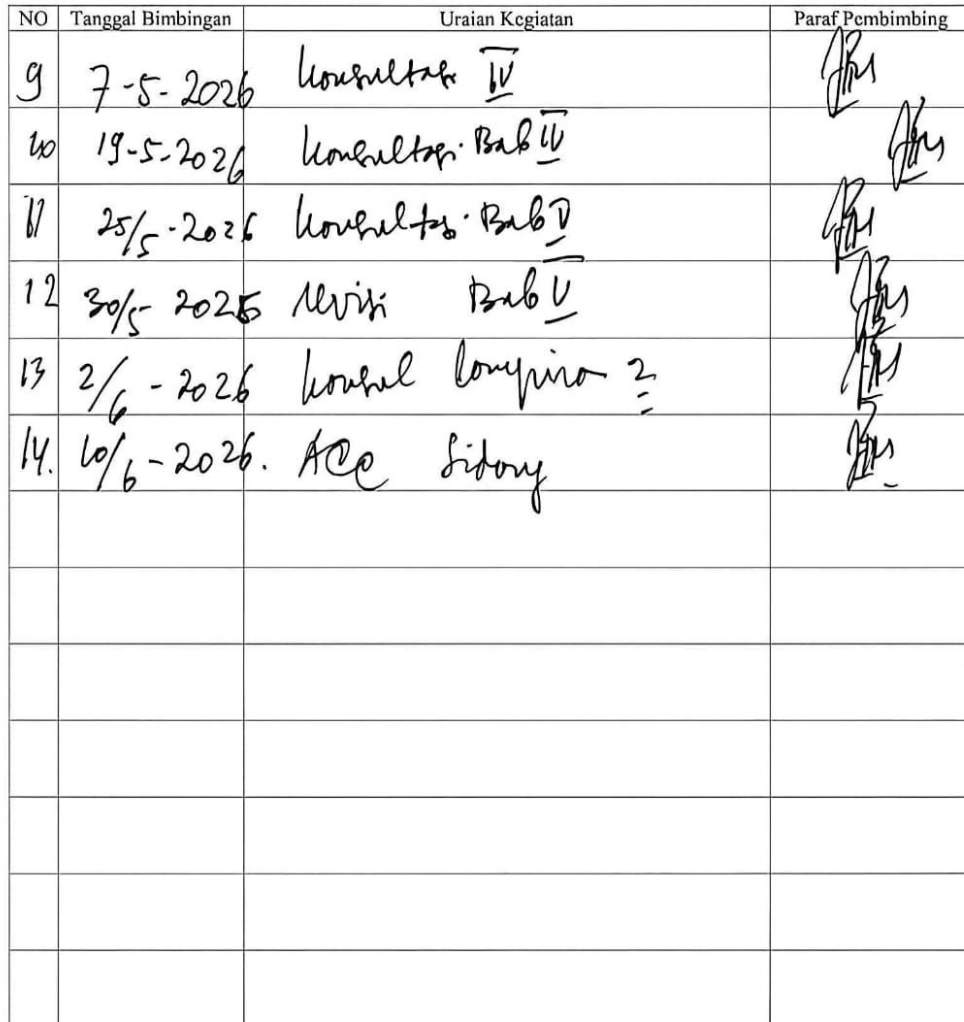 NO Tanggal Bimbingan Uraian Kegiatan Paraf Pembimbing
9 7-5-2026 Konsultasi IV
10 19-5-2026 Konsultasi Bab IV
11 25/5-2026 Konsultasi Bab V
12 30/5 2026 revisi Bab V
13 2/6-2026 Konsul 2
14. 10/6-2026. ACC Sidang